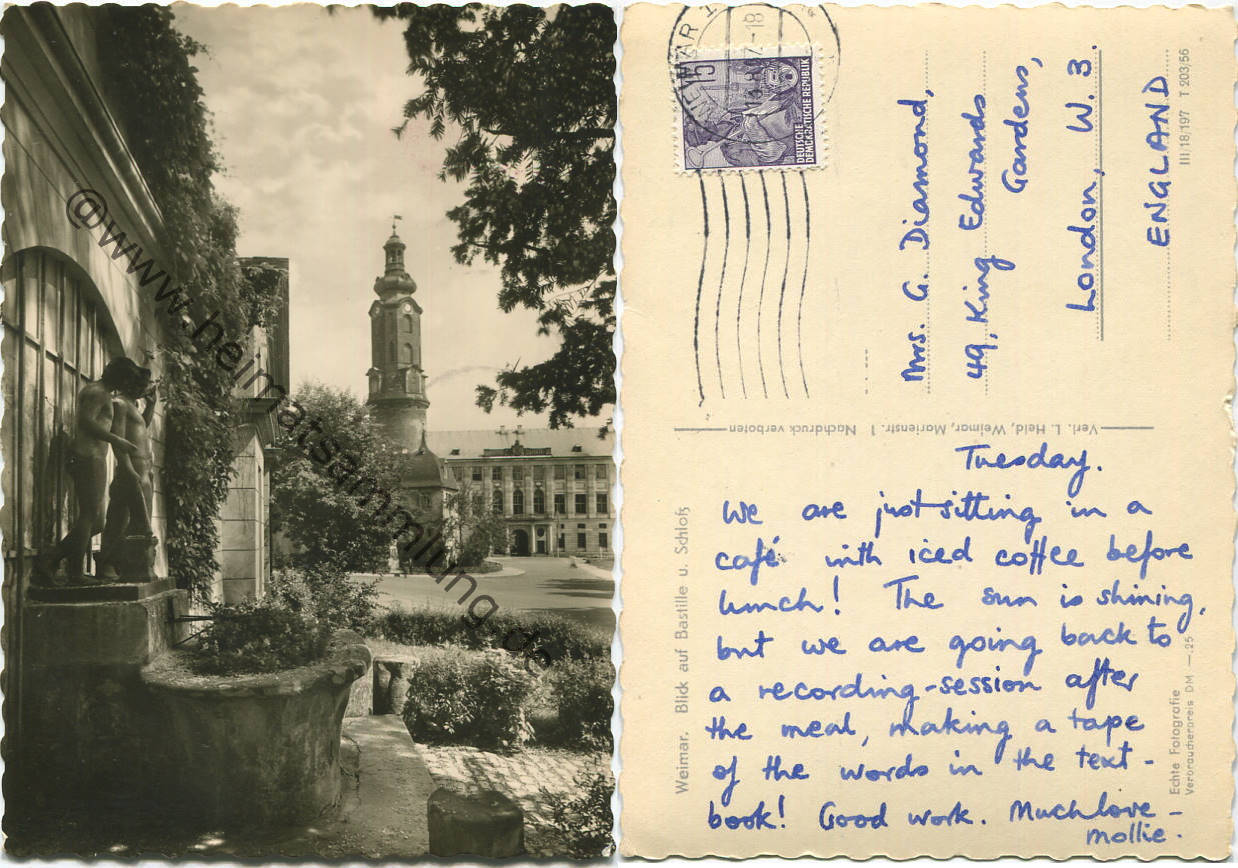 @www.heimatsammlung.de
WEIMAR 1
-18
15
DEUTSCHE
DEMOKRATISCHE REPUBLIK
Mrs. G. Diamond,
49, King Edwards
Gardens,
London, W. 3.
ENGLAND
III/18/197 T 203/56
Verl. L. Held, Weimar, Marienstr. 1 Nachdruck verboten
Weimar. Blick auf Bastille u. Schloß
Tuesday.
We are just sitting in a
café with iced coffee before
lunch! The sun is shining,
but we are going back to
a recording-session after
the meal, making a tape
of the words in the text-
book! Good work. Much love -
Mollie.
Echte Fotografie
Verbraucherpreis DM —.25